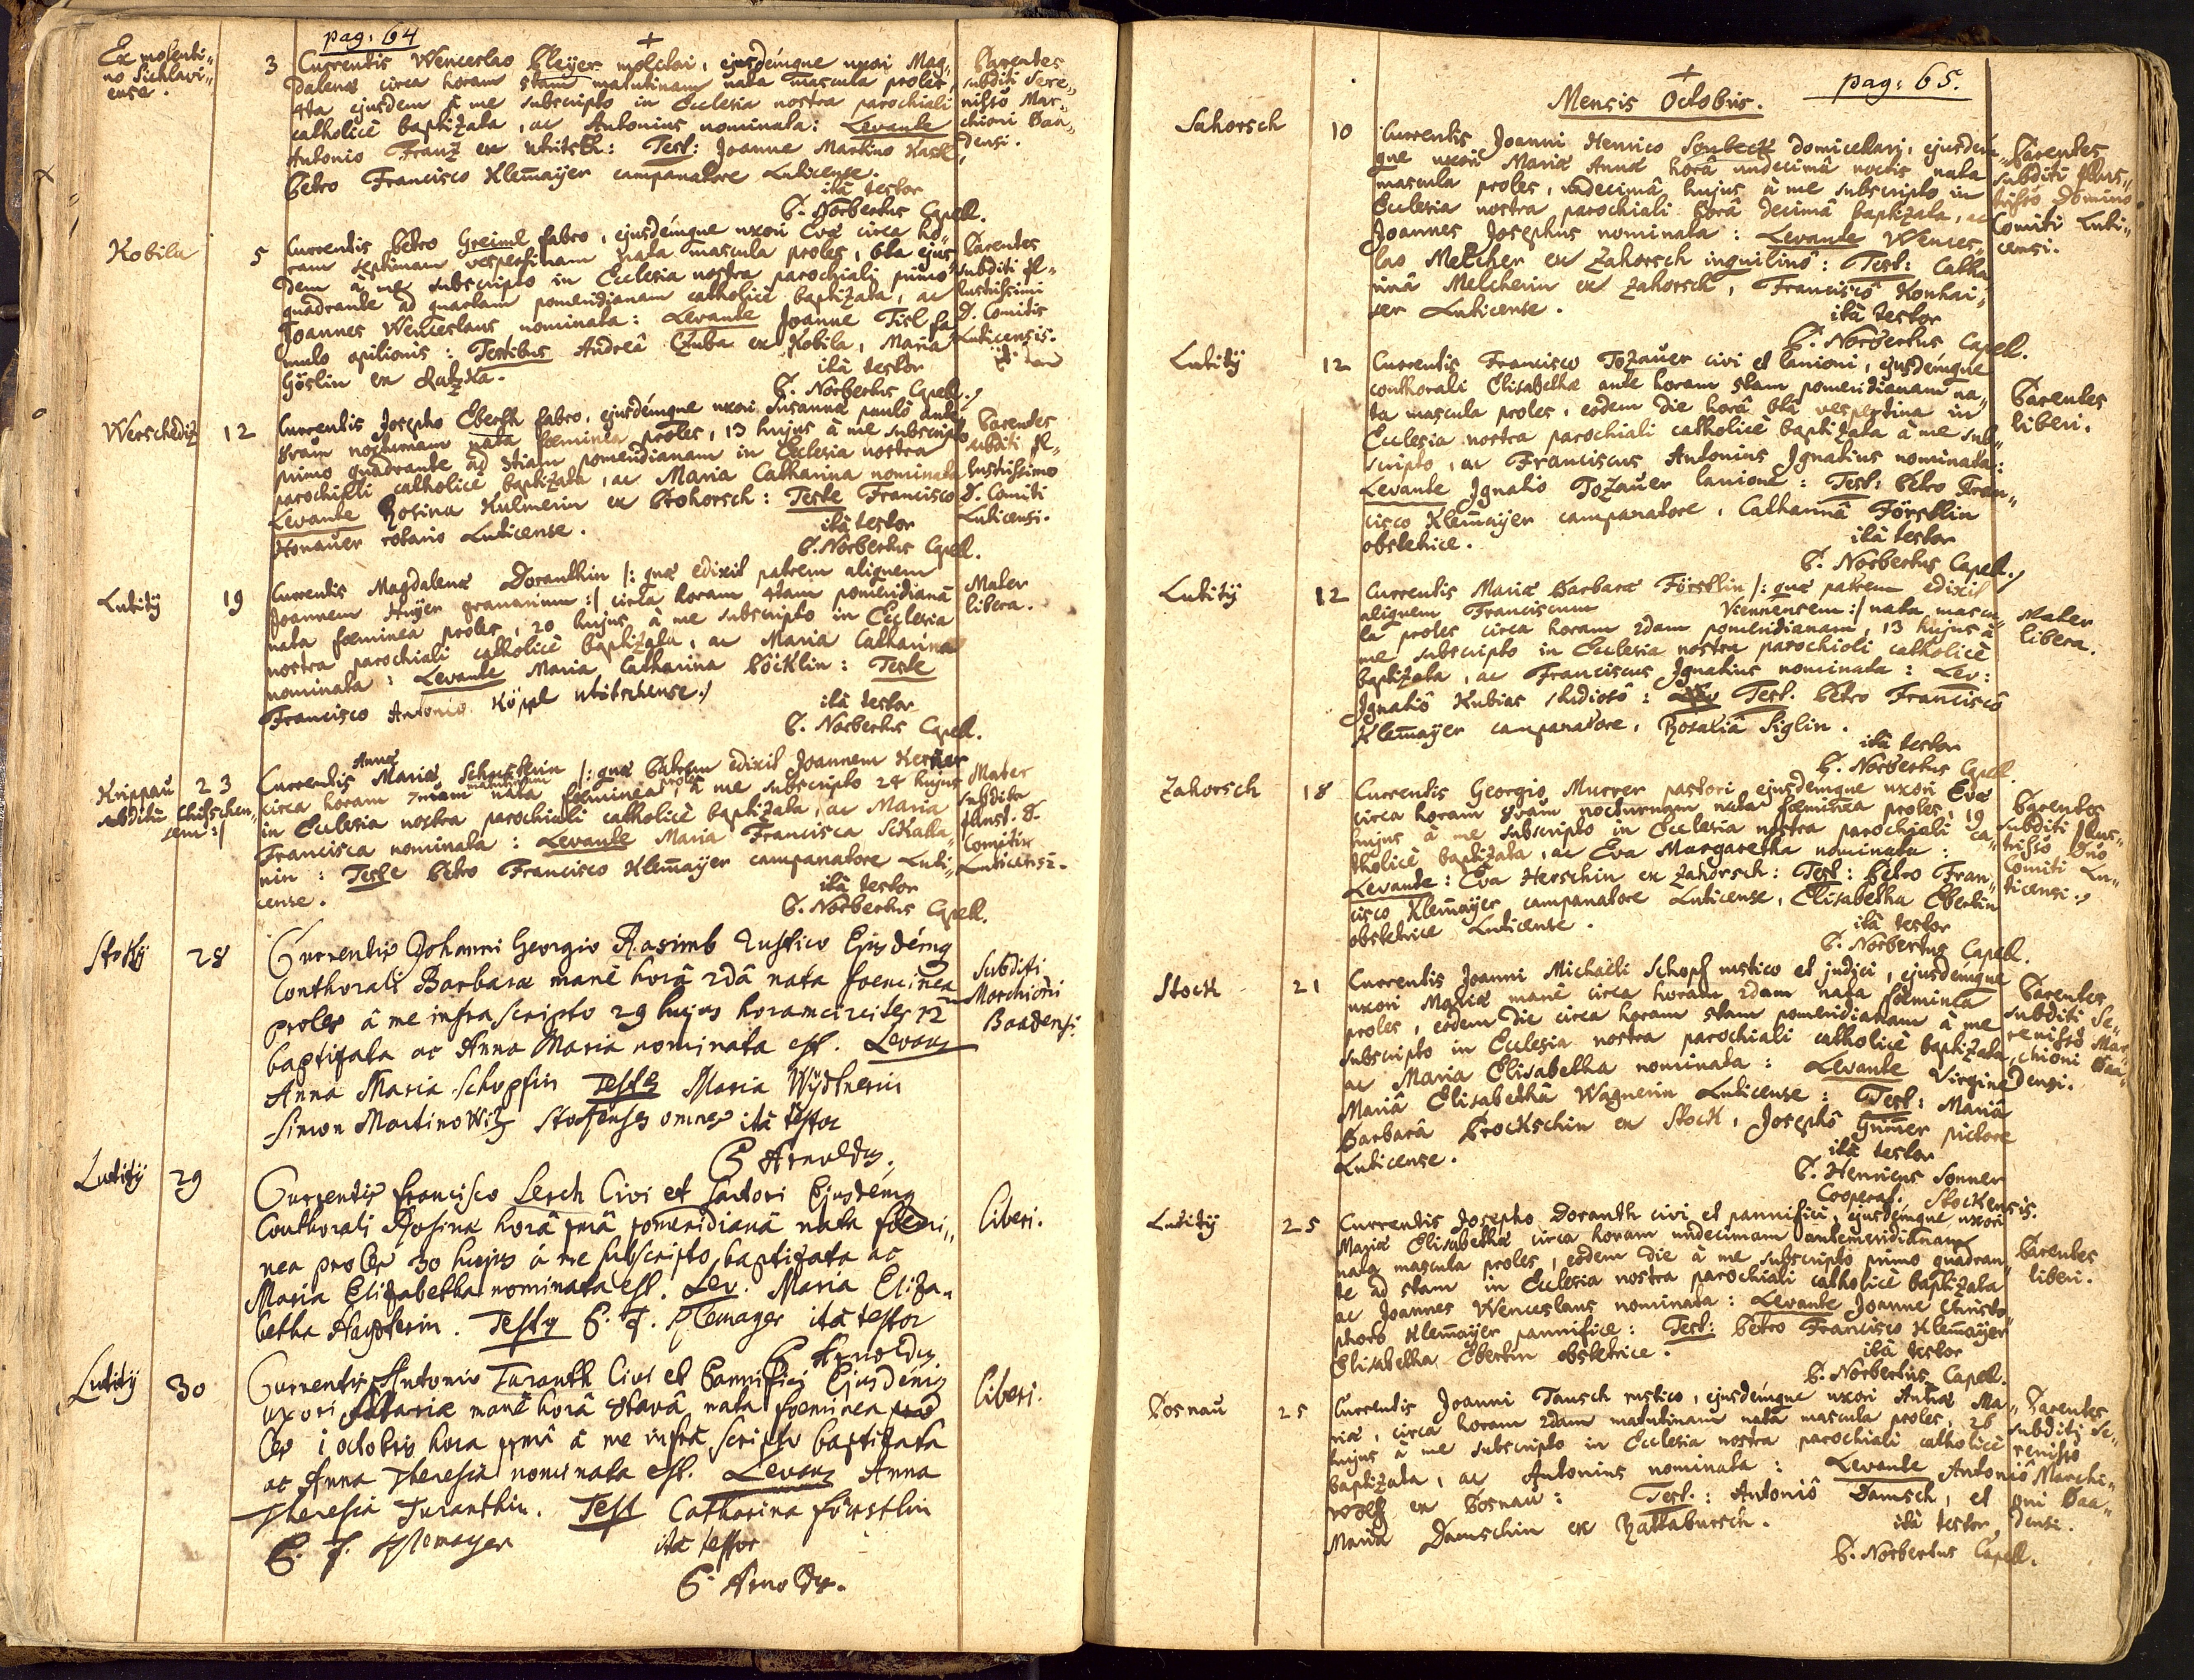 pag: 64
Ex molenti„
no Sichlavi„
ense.
3
Currentis Wenceslao Pleyer molitori, ejusdémque uxori Mag„
dalenæ circa horam 5tam matutinam nata mascula proles,
4ta ejusdem à me subscripto in Ecclesia nostra parochiali
catholicè baptizata, ac Antonius nominata: Levante
Antonio Franz ex : Test: Joanne Martino
Petro Francisco Klem̄aÿer campanatore Luticense.
ità testor
P. Norbertus Capell.
Parentes
subditi Sere„
nissõ Mar„
chioni Baa„
densi.
Kobila
5
Currentis Petro Greiml fabro, ejusdémque uxori Evæ circa ho„
ram septimam vespertinam nata mascula proles, 6ta ejus„
dem à me subscripto in Ecclesia nostra parochiali primo
quadrante ad quartam pomeridianam catholicè baptizata, ac
Joannes Wenceslaus nominata: Levante Joanne Tisl fa„
mulo opilionis: Testibus Andreâ Czuba ex Kobila, Maria
Göslin ex Ratzka.
ità testor
P. Norbertus Capell.
Parentes
subditi Il„
lustrissimi
D. Comitis
Luticensis.
Werscheditz
12
Currentis Josepho Ebersh fabro, ejusdémque uxori Susannæ paulò ante
8vam nocturnam nata fœminea proles, 13 hujus à me subscripto
primo quadrante ad 3tiam pomeridianam in Ecclesia nostra
parochiali catholicè baptizata, ac Maria Catharina nominata
Levante Rosina Kulmerin ex Prohorsch: Teste Francisco
Honauer rotario Luticense.
ità testor
P. Norbertus Capell.
Parentes
subditi Il„
lustrissimo
D. Comiti
Luticensi.
Lutitÿ
19
Currentis Magdalenæ Doranthin /: quæ edixit patrem aliquem
Joannem Huÿer granarium :/ circa horam 4tam pomeridianã
nata fœminea proles, 20 hujus à me subscripto in Ecclesia
nostra parochiali catholicè baptizata, ac Maria Catharina
nominata: Levante Maria Catharina Böcklin: Teste
Francisco Antonio Köppl
ità testor
P. Norbertus Capell.
Mater
libera.
Krippau
subditæ Chischen„
sem :/
23
Currentis Mariæ Annæ Schusterin /: quæ Patrem edixit Joannem Kerner
circa horam 7mam matutinam nata fœminea proles, à me subscripto 24 hujus
in Ecclesia nostra parochiali catholicè baptizata, ac Maria
Francisca nominata: Levante Maria Francisca Schalla„
nin: Teste Petro Francisco Klem̄aÿer campanatore Luti„
cense.
ità testor
P. Norbertus Capell.
Mater
subdita
Illust. D.
Comitis
Luticensi.
Stoky
28
Currentis Johanni Georgio Rasimb Rustico Ejusdémq
Conthorali Barbaræ manè horâ 2dâ nata foeminea
proles à me infrascripto 29 hujus horam circiter 12
baptizata ac Anna Maria nominata est. Levans
Anna Maria Schopfin Testes Maria Wÿdtnerin
Simon Martinowitz Stokenses omnes ità testor
P Arnoldus.
Subditi
Marchioni
Baadensi.
Lutitÿ
29
Currentis Francisco Lerch Civi et Sartori Ejusdémq
Conthorali Rosinæ horâ 1mâ pomeridianâ nata foemi„
nea proles 30 hujus à me subscripto baptizata ac
Maria Elizabetha nominata est. Lev. Maria Eliza„
betha Hayserin. Testes P. F. Klemayer ità testor
P Arnoldus
liberi.
Lutitÿ
30
Currentis Antonio Turanth Civi et Pannifici Ejusdémq
uxori Mariæ manè horâ 8tavâ nata foeminea pro„
les 1 octobris hora 1mâ à me infrà scripto baptizata
ac Anna Theresia nominata est. Levans Anna
Theresia Turanthin. Test Catharina Förstlin
P. F. Klemayer
ità testor
P. Arnoldus.
liberi.
pag: 65.
Mensis Octobris.
Sahorsch
10
Currentis Joanni Henrico Sonbeck domicellarj, ejusdém„
que uxori Mariæ Annæ horâ undecimâ noctis nata
mascula proles, undecimâ hujus à me subscripto in
Ecclesia nostra parochiali horâ decimâ baptizata, ac
Joannes Josephus nominata: Levante Wences„
lao Melcher ex Zahorsch inquilino: Test: Catha„
rinâ Melcherin ex Zahorsch, Franciscô Konhai„
ser Luticense.
ità testor
P. Norbertus Capell.
Parentes
subditi Illus„
trissõ Domino
Comiti Luti„
censi.
Lutitÿ
12
Currentis Francisco Tozauer civi et lanioni, ejusdémque
conthorali Elisabethæ ante horam 5tam pomeridianam na„
ta mascula proles, eodem die horâ 6tâ vespertina in
Ecclesia nostra parochiali catholicè baptizata à me sub„
scripto, ac Franciscus Antonius Ignatius nominata:
Levante Ignatio Tozauer lanione: Test: Petro Fran„
cisco Klem̄aÿer campanatore, Catharinâ Förstlin
obstetrice.
ità testor
P. Norbertus Capell.
Parentes
liberi.
Lutitÿ
12
Currentis Mariæ Barbaræ Förstlin /: quæ patrem edixit
aliquem Franciscum Viennensem :/ nata mascu„
la proles circa horam 2dam pomeridianam, 13 hujus à
me subscripto in Ecclesia nostra parochiali catholicè
baptizata, ac Franciscus Ignatius nominata: Lev:
Ignatiô Kubias studiosô: Test. Petro Franciscô
Klem̄aÿer campanatore, Rosaliâ Siglin.
ità testor
P. Norbertus Capell.
Mater
libera.
Zahorsch
18
Currentis Georgio Murrer pastori ejusdémque uxori Evæ
circa horam 8vam nocturnam nata fœminea proles, 19
hujus à me subscripto in Ecclesia nostra parochiali ca„
tholicè baptizata, ac Eva Margaretha nominata:
Levante: Eva Herschin ex Zahorsch: Test: Petro Fran„
cisco Klem̄aÿer campanatore Luticense, Elisabetha Eberlin
obstetrice Luticense.
ità testor
P. Norbertus Capell.
Parentes
subditi Illus„
trissõ Dño
Comiti Lu„
ticensi.
Stock
21
Currentis Joanni Michaëli Schopf rustico et judici, ejusdémque
uxori Mariæ manè circa horam 2dam nata fœminea
proles, eodem die circa horam 5tam pomeridianam à me
subscripto in Ecclesia nostra parochiali catholicè baptizata,
ac Maria Elisabetha nominata: Levante Virgine
Mariâ Elisabethâ Wagnerin Luticense: Test: Mariâ
Barbarâ Brockschin ex Stock, Josephô Gum̄er pictore
Luticense.
ità testor
P. Henricus Sonner
Cooperat. Stockensis.
Parentes
subditi Se„
renissõ Mar„
chioni Baa„
densi.
Lutitÿ
25
Currentis Josepho Doranth civi et pannifici, ejusdémque uxori
Mariæ Elisabethæ circa horam undecimam antemeridianam
nata mascula proles, eodem die à me subscripto primo quadran„
te ad 5tam in Ecclesia nostra parochiali catholicè baptizata
ac Joannes Wenceslaus nominata: Levante Joanne Christo„
phoro Klem̄aÿer pannifice: Test: Petro Francisco Klem̄aÿer
Elisabetha Eberlin obstetrice.
ità testor
P. Norbertus Capell.
Parentes
liberi.
Posnau
25
Currentis Joanni Tausch rustico, ejusdémque uxori Annæ Ma„
riæ, circa horam 2dam matutinam nata mascula proles, 26
hujus à me subscripto in Ecclesia nostra parochiali catholicè
baptizata, ac Antonius nominata: Levante Antoniô
Wolf ex Posnau: Test.: Antoniô Damsch, et
Maria Damschin ex Rattabursch.
ità testor
P. Norbertus Capell.
Parentes
subditi Se„
renissõ
Marchi„
oni Baa„
densi.